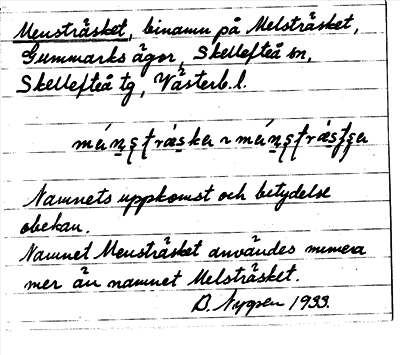 Mensträsket, binamn på Melsträsket,
Gummarks ägor, Skellefteå sn,
Skellefteå tg, Västerb.l.
Namnets uppkomst och betydelse
obekan.
Namnet Mensträsket användes numera
mer än namnet Melsträsket.
B. Nygren 1933.